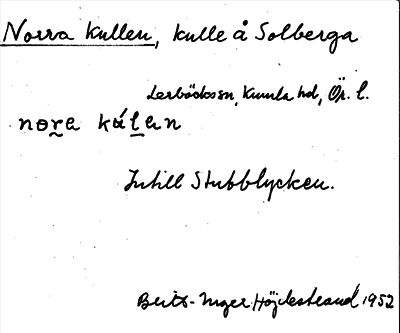 Norra Kullen, kulle å Solberga
Lerbäcks sn, Kumla hd, Ör. l.
nora kúlan
Intill Stubblycken.
Britt-Inger Höjdestrand 1952